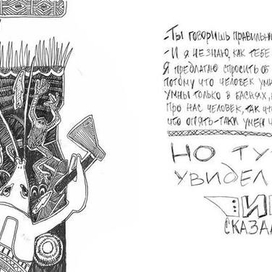 -Ты говоришь правильн
-И я не знаю, как тебе
Я предлагаю спросить об
потому что человек умн
умны только в баснях,
про нас человек, так чт
что опять-таки умён ч
НО ТУ
УВИДЕЛ
СКАЗАЛ